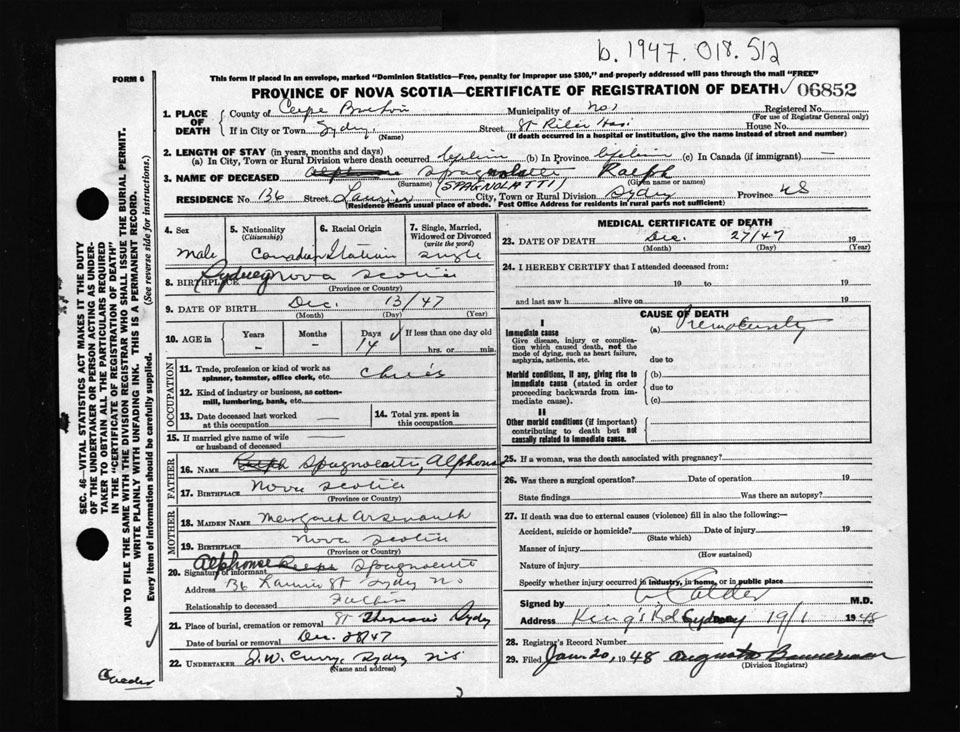 b. 1947. 018. 512
FORM 6
This form if placed in an envelope, marked "Dominion Statistics—Free, penalty for improper use $300," and properly addressed will pass through the mail "FREE"
PROVINCE OF NOVA SCOTIA—CERTIFICATE OF REGISTRATION OF DEATH 06852
1. PLACE OF DEATH County of Cape Breton Municipality of Registered No.
(For use of Registrar General only)
If in City or Town Sydney, Street House No.
(Name) (If death occurred in a hospital or institution, give the name instead of street and number)
2. LENGTH OF STAY (in years, months and days)
(a) In City, Town or Rural Division where death occurred (b) In Province (c) In Canada (if immigrant) —
3. NAME OF DECEASED Ralph
(Surname) (SPAGNOLATTI) (Given name or names)
RESIDENCE No. 136 Street City, Town or Rural Division Sydney Province NS
(Residence means usual place of abode. Post Office Address for residents in rural parts not sufficient)
4. Sex 5. Nationality (Citizenship) 6. Racial Origin 7. Single, Married, Widowed or Divorced (write the word)
Male Canadian Italian Single
8. BIRTHPLACE Sydney Nova Scotia
(Province or Country)
9. DATE OF BIRTH Dec. 13/47
(Month) (Day) (Year)
10. AGE in Years Months Days If less than one day old
– – 14 hrs. or min.
OCCUPATION
11. Trade, profession or kind of work as spinner, teamster, office clerk, etc.
12. Kind of industry or business, as cotton-mill, lumbering, bank, etc.
13. Date deceased last worked at this occupation — 14. Total yrs. spent in this occupation
15. If married give name of wife or husband of deceased
FATHER
16. NAME Alphonse
17. BIRTHPLACE Nova Scotia
(Province or Country)
MOTHER
18. MAIDEN NAME Margaret Arsenault
19. BIRTHPLACE Nova Scotia
(Province or Country)
20. Signature of informant Alphonse
Address 136 St Sydney NS
Relationship to deceased Father
21. Place of burial, cremation or removal St Sydney
Date of burial or removal Dec. 28/47
22. UNDERTAKER J.W. Curry, Sydney NS
(Name and address)
MEDICAL CERTIFICATE OF DEATH
23. DATE OF DEATH Dec. 27/47 19
(Month) (Day) (Year)
24. I HEREBY CERTIFY that I attended deceased from:
19 to 19
and last saw h alive on 19
CAUSE OF DEATH
I
Immediate cause (a) Prematurity
Give disease, injury or complication which caused death, not the mode of dying, such as heart failure, asphyxia, asthenia, etc.
due to
Morbid conditions, if any, giving rise to immediate cause (stated in order proceeding backwards from immediate cause).
(b)
due to
(c)
II
Other morbid conditions (if important) contributing to death but not causally related to immediate cause.
25. If a woman, was the death associated with pregnancy?
26. Was there a surgical operation? Date of operation 19
State findings Was there an autopsy?
27. If death was due to external causes (violence) fill in also the following:—
Accident, suicide or homicide? Date of injury 19
(State which)
Manner of injury
(How sustained)
Nature of injury
Specify whether injury occurred in industry, in home, or in public place
Signed by Calder M.D.
Address King's Rd Sydney 19/1 1948
28. Registrar's Record Number
29. Filed Jan 20, 1948 Bannerman
(Division Registrar)
SEC. 46—VITAL STATISTICS ACT MAKES IT THE DUTY
OF THE UNDERTAKER OR PERSON ACTING AS UNDER-
TAKER TO OBTAIN ALL THE PARTICULARS REQUIRED
IN THE "CERTIFICATE OF REGISTRATION OF DEATH"
AND TO FILE THE SAME WITH THE DIVISION REGISTRAR WHO SHALL ISSUE THE BURIAL PERMIT.
WRITE PLAINLY WITH UNFADING INK. THIS IS A PERMANENT RECORD.
Every item of information should be carefully supplied. (See reverse side for instructions.)
Calder